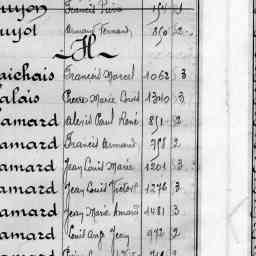 uyon Francis Pierre
uyot Armand Fernand 850 2
H
aichais Francis Marcel 1062 3
alais Pierre Marie Louis 1340 3
amard Alexis Paul René 851 2
amard Francis Armand 798 2
amard Jean Louis Marie 1201 3
amard Jean Louis Victor 1276 3
amard Jean Marie Amand 1481 3
amard Louis Ange Jean 972 2
amard